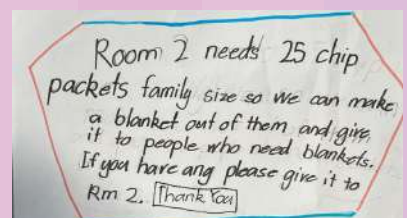 Room 2 needs 25 chip
packets family size so we can make
a blanket out of them and give
it to people who need blankets.
If you have any please give it to
Rm 2. Thank You